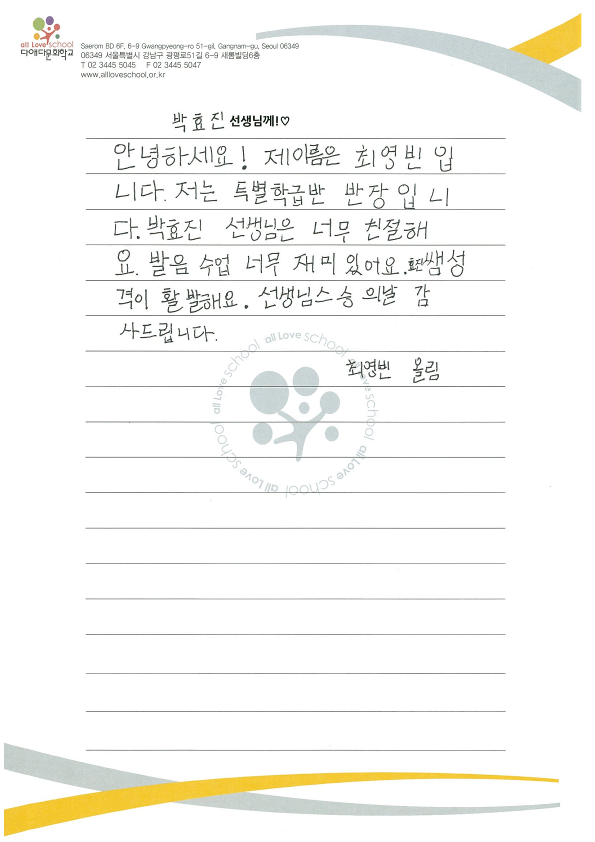 all Love school
다애다문화학교
Saerom BD 6F, 6-9 Gwangpyeong-ro 51-gil, Gangnam-gu, Seoul 06349
06349 서울특별시 강남구 광평로51길 6-9 새롬빌딩6층
T 02 3445 5045 F 02 3445 5047
www.allloveschool.or.kr
박효진 선생님께!♡
안녕하세요! 제이름은 최영빈 입
니다. 저는 특별학급반 반장 입 니
다. 박효진 선생님은 너무 친절해
요. 발음 수업 너무 재미 있어요. 효진쌤 성
격이 활발해요. 선생님스승 의날 감
사드립니다.
최영빈 올림
all Love school all Love school all Love school all Love school